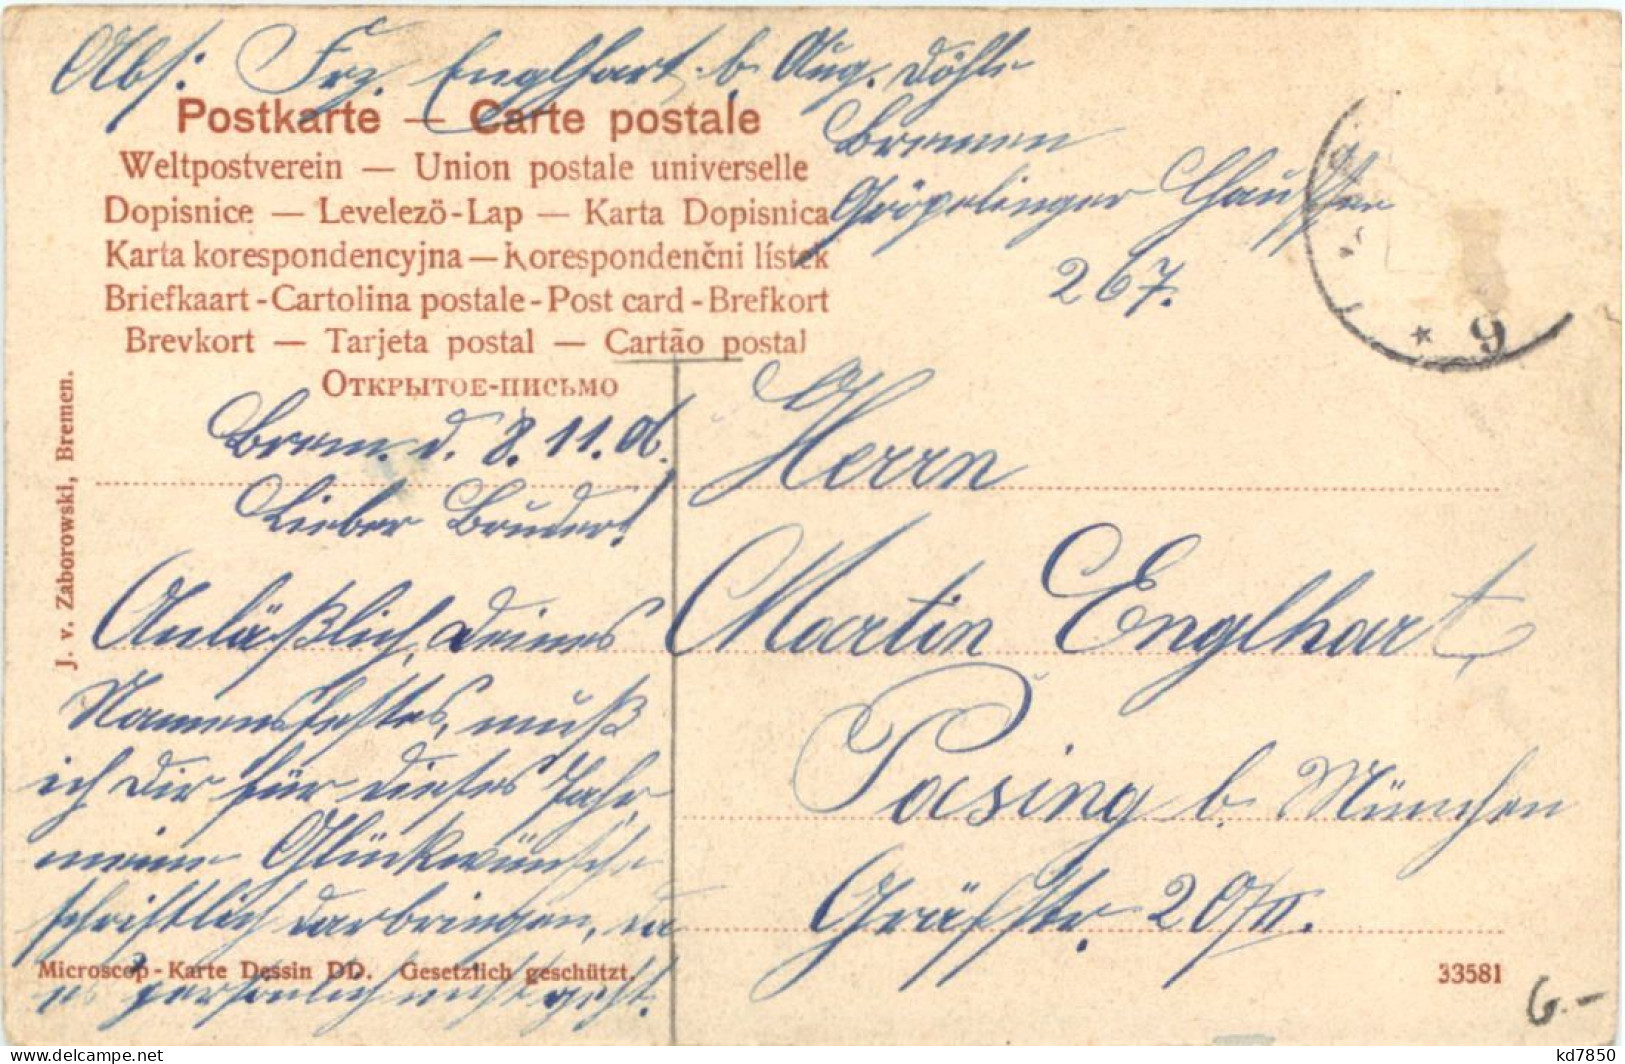 Abs: Frz. Englhart b. Aug. Döhle
Bremen
Gröpelinger Chaussee
267.
Postkarte — Carte postale
Weltpostverein — Union postale universelle
Dopisnice — Levelezö-Lap — Karta Dopisnica
Karta korespondencyjna — Korespondenčni lístek
Briefkaart - Cartolina postale - Post card - Brefkort
Brevkort — Tarjeta postal — Cartão postal
Открытое-письмо
J. v. Zaborowski, Bremen.
Brem. d. 8.11.06.
Lieber Bruder!
Anläßlich deines
Namensfestes, muß
ich dir für dieses Jahr,
meine Glückwünsche
schriftlich darbringen, da
es persönlich nicht geht.
Herrn
Martin Englhart
Pasing b. München
Gräfstr. 20/II.
Microscop-Karte Dessin DD. Gesetzlich geschützt.
33581
6.-
* 9
kd7850